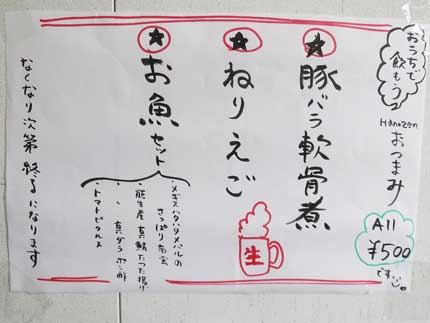 おうちで
飲もう♡
Hanozen
おつまみ
All
¥500
です。
★豚バラ軟骨煮
★ねりえご
生
★お魚セット
・メギスハタハタメバルの
さっぱり南蛮
・能生産真鯛たつた揚げ
・〃真ダラポン酢
・トマトピクルス
なくなり次第終了になります